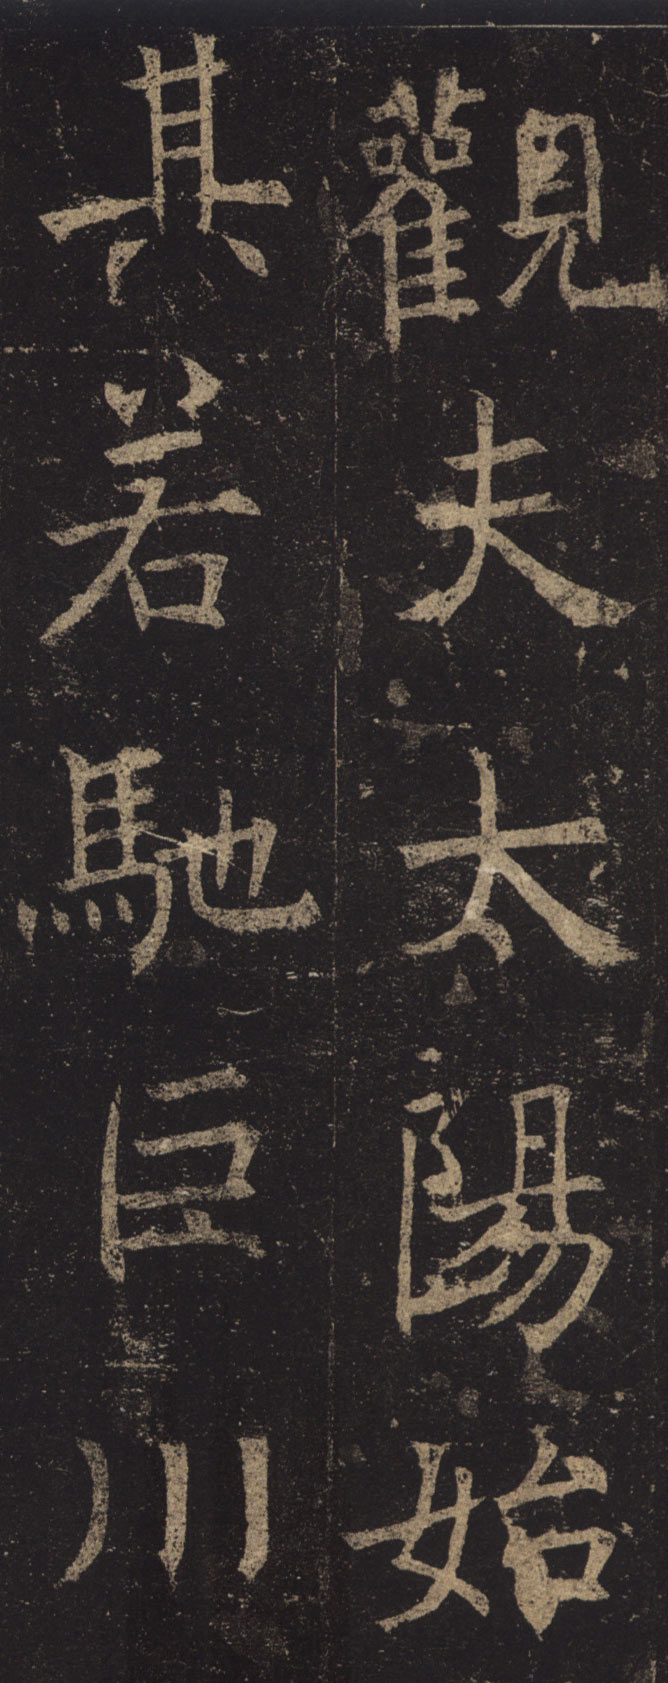 觀夫太陽始
其若馳巨川